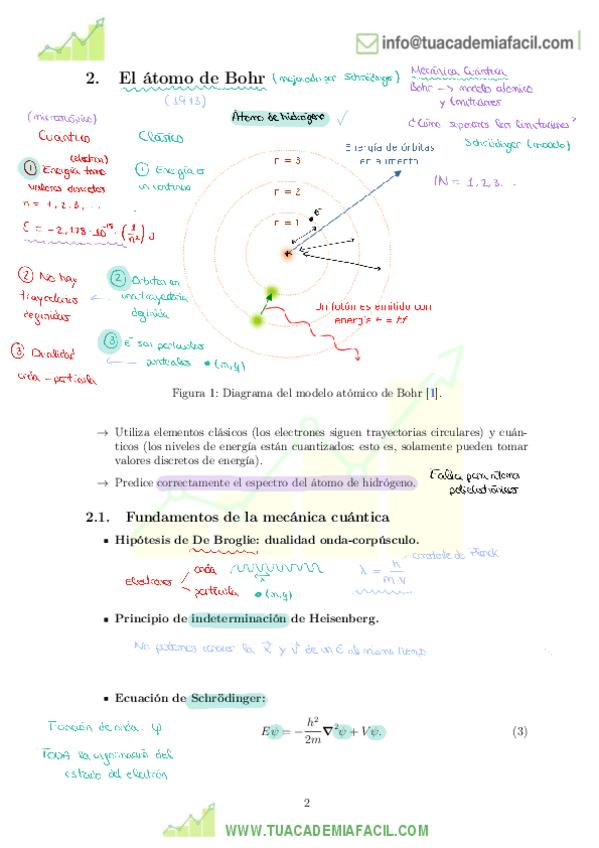 info@tuacademiafacil.com
2. El átomo de Bohr (mejorado por Schrödinger)
(1913)
Mecánica Cuántica
Bohr → modelo atómico
y limitaciones
¿Cómo superamos las limitaciones?
Schrödinger (modelo)
N = 1, 2, 3...
Átomo de hidrógeno ✓
(microscópico)
Cuántico
(electrón)
① Energía toma
valores discretos
n = 1, 2, 3, ...
E = -2,178 · 10⁻¹⁸ · (1/n²) J
② No hay
trayectorias
definidas
③ Dualidad
onda-partícula
Clásico
① Energía es
un continuo
② Orbitan en
una trayectoria
definida
③ e⁻ son partículas
puntuales • (m, q)
n = 3
n = 2
n = 1
e⁻
Energía de órbitas
en aumento
Un fotón es emitido con
energía E = hf
Figura 1: Diagrama del modelo atómico de Bohr [1].
→ Utiliza elementos clásicos (los electrones siguen trayectorias circulares) y cuán-
ticos (los niveles de energía están cuantizados: esto es, solamente pueden tomar
valores discretos de energía).
→ Predice correctamente el espectro del átomo de hidrógeno.
Falla para átomos
polielectrónicos
2.1. Fundamentos de la mecánica cuántica
▪ Hipótesis de De Broglie: dualidad onda-corpúsculo.
Electrones
onda
λ
partícula • (m, q)
λ = h / m·v
constante de Planck
▪ Principio de indeterminación de Heisenberg.
No podemos conocer la x⃗ y v⃗ de un e⁻ al mismo tiempo
▪ Ecuación de Schrödinger:
Función de onda: ψ
TODA la información del
estado del electrón
Eψ = −ℏ²/2m ∇²ψ + Vψ. (3)
2
WWW.TUACADEMIAFACIL.COM